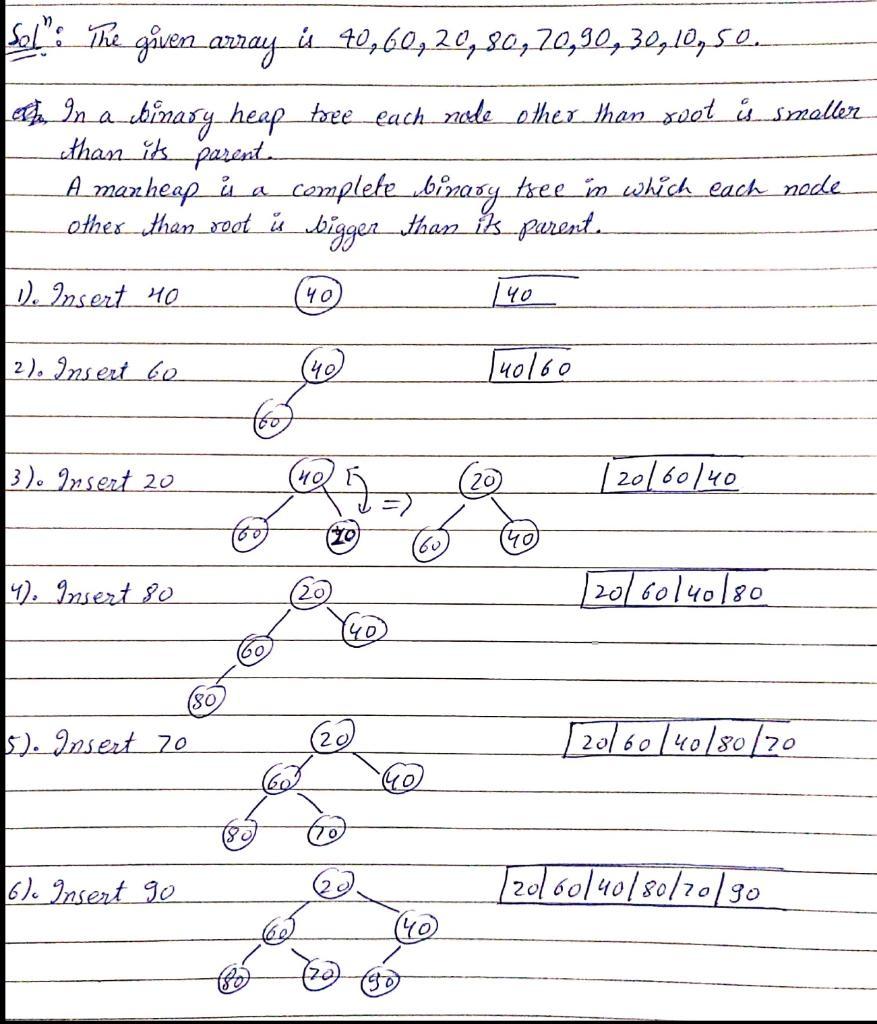 Solⁿ: The given array is 40, 60, 20, 80, 70, 90, 30, 10, 50.
In a binary heap tree each node other than root is smaller
than its parent.
A maxheap is a complete binary tree in which each node
other than root is bigger than its parent.
1). Insert 40 40 40
2). Insert 60 40 40|60
60
3). Insert 20 40 => 20 20|60|40
60 20 60 40
4). Insert 80 20 20|60|40|80
60 40
80
5). Insert 70 20 20|60|40|80|70
60 40
80 70
6). Insert 90 20 20|60|40|80|70|90
60 40
80 70 90